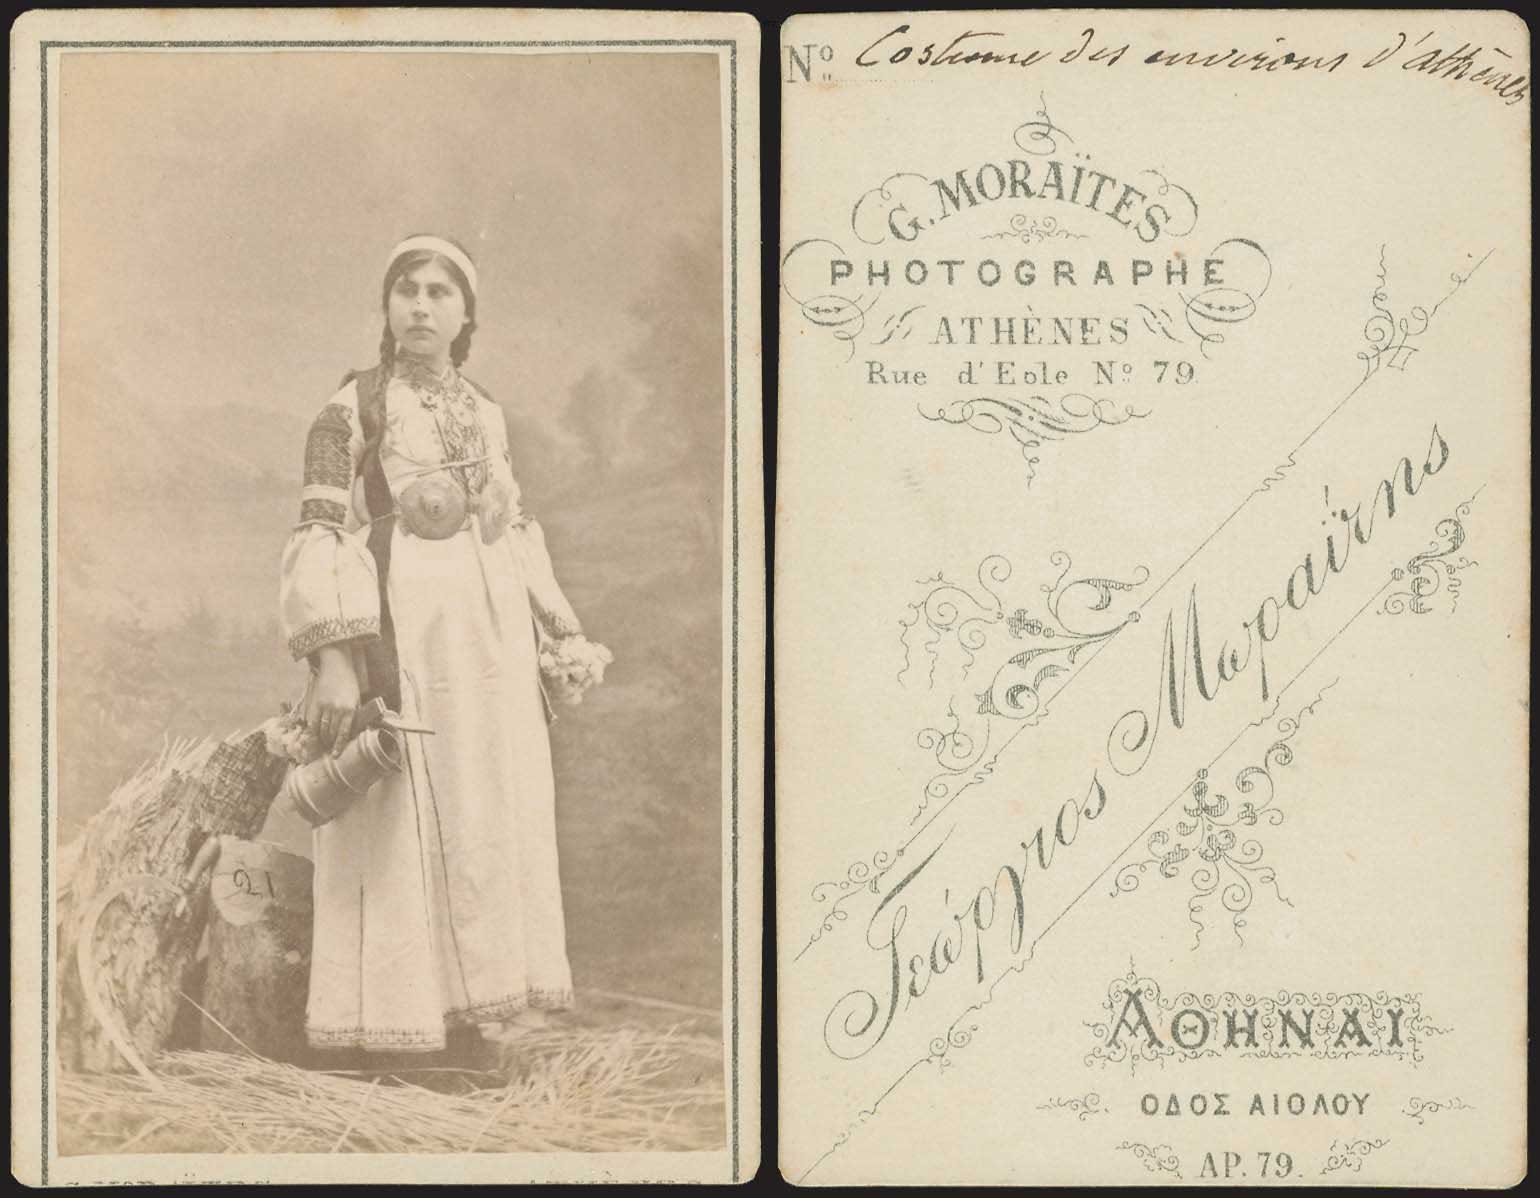 21
G. MORAÏTES
ATHÈNES
Nº Costume des environs d'athènes
G. MORAÏTES
PHOTOGRAPHE
ATHÈNES
Rue d'Eole Nº 79
Γεώργιος Μωραΐτης
ΑΘΗΝΑΙ
ΟΔΟΣ ΑΙΟΛΟΥ
ΑΡ. 79.